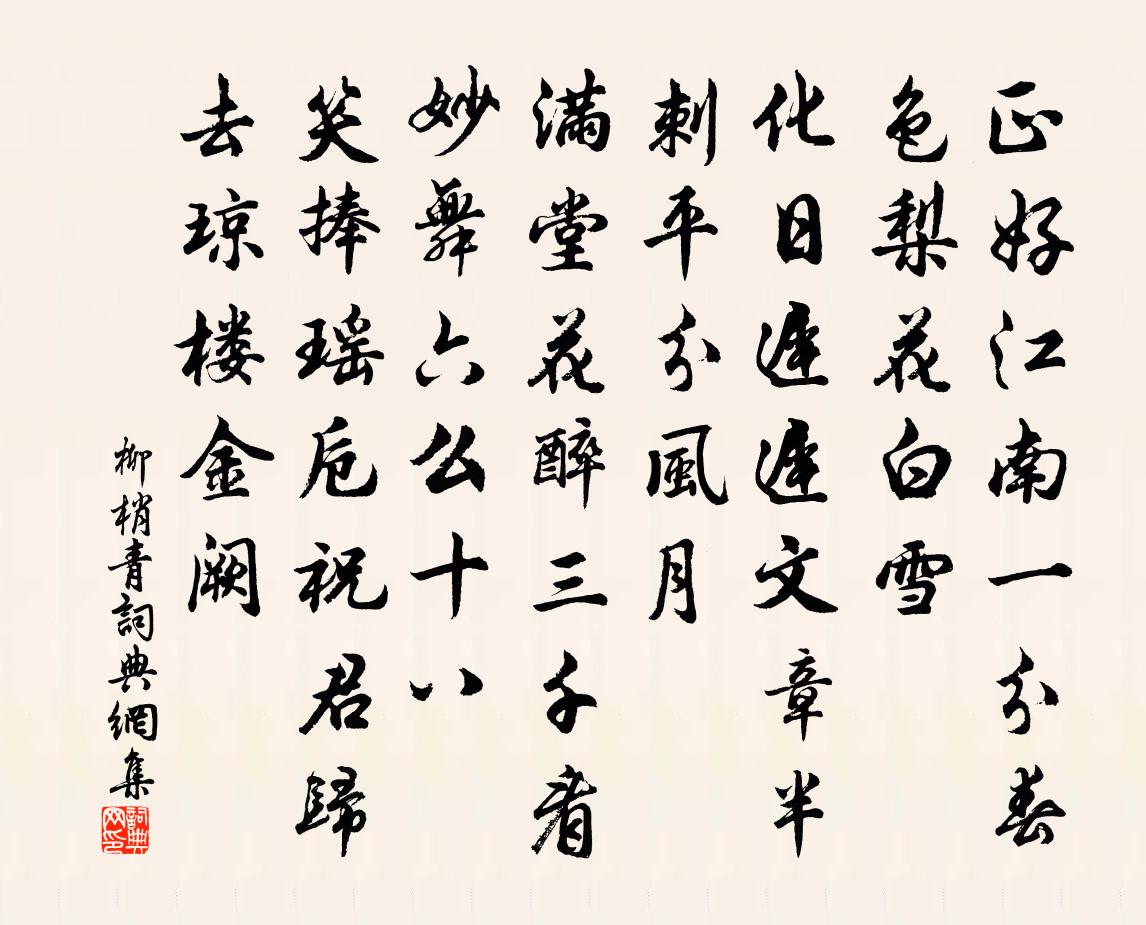 正好江南一分春
色梨花白雪
化日遲遲文章半
刺平分風月
滿堂花醉三千看
妙舞六么十八
笑捧瑶卮祝君歸
去琼楼金闕
柳梢青詞典網集
詞典
网印